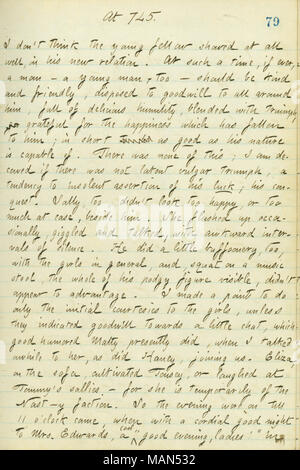 At 745.
79
I don't think the young fellow showed at all
well, in his new relation. At such a time, if ever,
a man - a young man, too - should be kind
and friendly, disposed to goodwill to all around
him, full of delicious humility, blended with triumph,
grateful for the happiness which has fallen
to him; in short as good as his nature
is capable of. There was none of this; I am de-
ceived if there was not latent vulgar triumph, a
tendency to insolent assertion of his luck; his con-
quest. Sally, too didn't look too happy, or too
much at ease, beside him. She flushed up occa-
sionally, giggled and talked, with awkward inter-
vals of silence. He did a little buffoonery, too,
with the girls in general, and, squat on a music
stool, the whole of his podgy figure visible, didn't
appear to advantage. I made a point to do
only the initial courtesies to the girls, unless
they indicated goodwill towards a little chat, which
good humored Matty presently did, when I talked
awhile to her, as did Haney, joining us. Eliza,
on the sofa, cultivated Tousey, or laughed at
Tommy's sallies - for she is temporarily of the
Nast-y faction. So the evening wore on till
11 o'clock came, when with a cordial good night
to Mrs. Edwards, a "good evening, ladies!" in
alamy
Image ID: MAN532
www.alamy.com